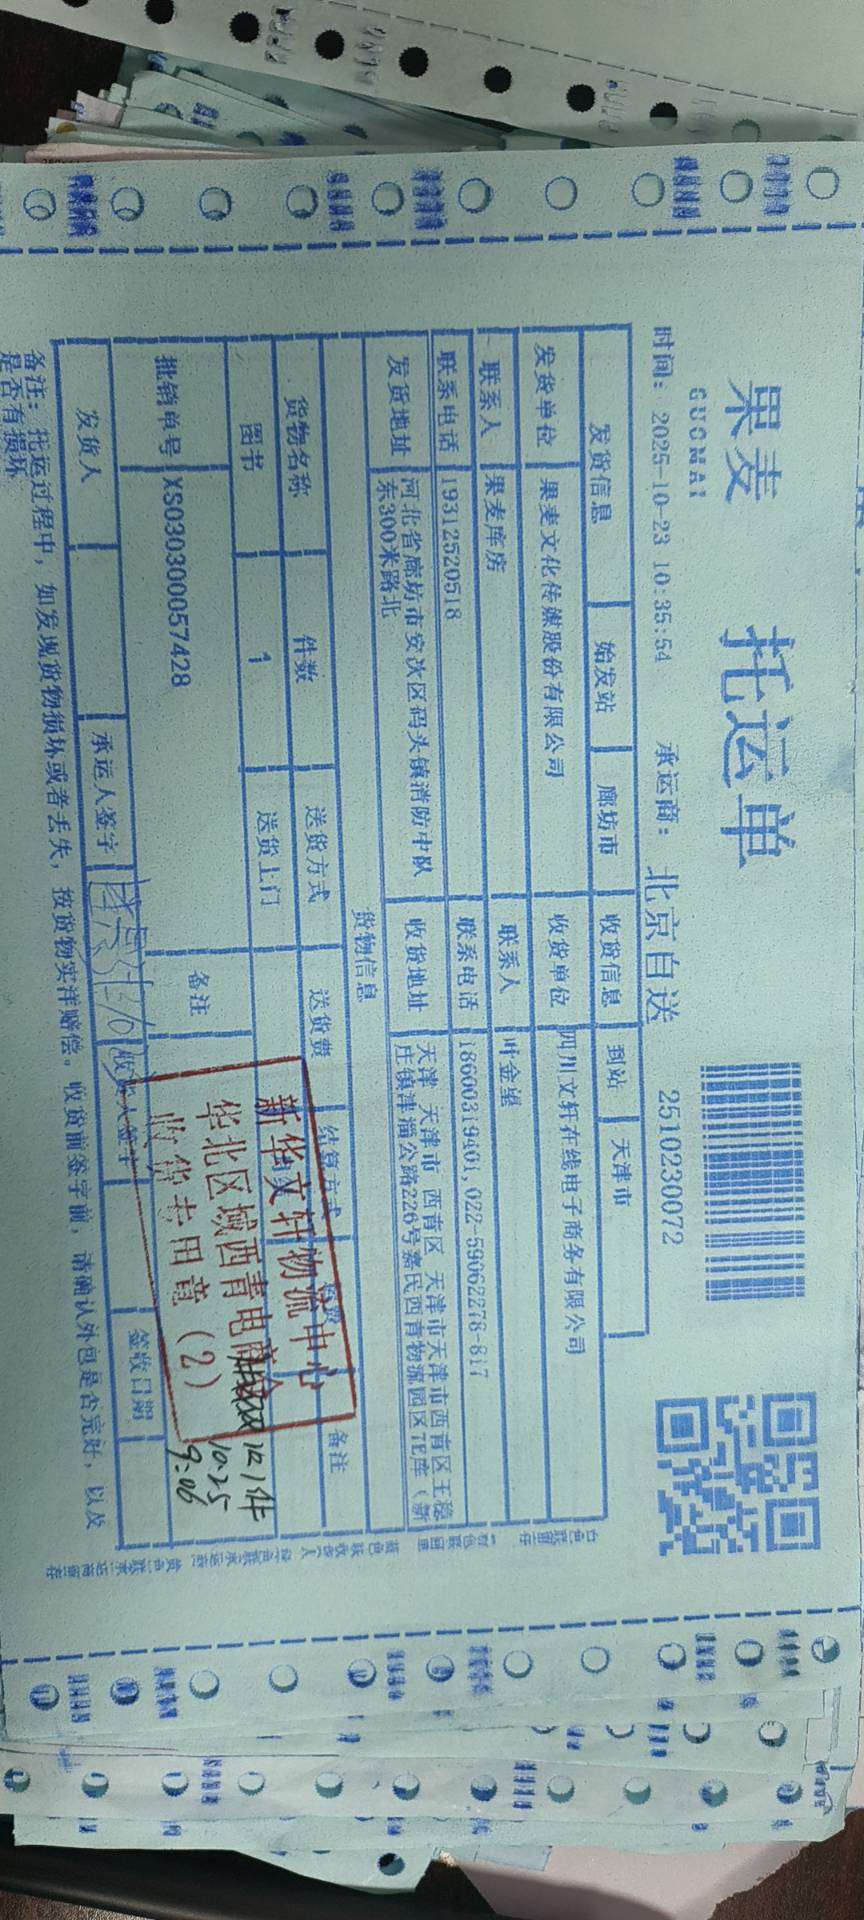 果麦
GUOMAI
托运单
时间: 2025-10-23 10:35:54 承运商: 北京自送 2510230072
发货信息 始发站 廊坊市 收货信息 到站 天津市
发货单位 果麦文化传媒股份有限公司 收货单位 四川文轩在线电子商务有限公司
联系人 果麦库房 联系人 叶金望
联系电话 19312520518 联系电话 18600319401,022-59062278-817
发货地址 河北省廊坊市安次区码头镇消防中队
东300米路北
收货地址 天津 天津市 西青区 天津市天津市西青区王稳
庄镇津淄公路226号嘉民西青物流园区7E库（新
货物信息
货物名称 件数 送货方式 送货费 结算方式 备注
图书 1 送货上门
批销单号 XS030300057428 备注
新华文轩物流中心
华北区域西青电商仓
收货专用章（2）
1件
10.25
9:06
发货人 承运人签字 收货人签字 签收日期
备注: 托运过程中, 如发现货物损坏或者丢失, 按货物实洋赔偿。收货前签字前, 请确认外包是否完好, 以及
是否有损坏